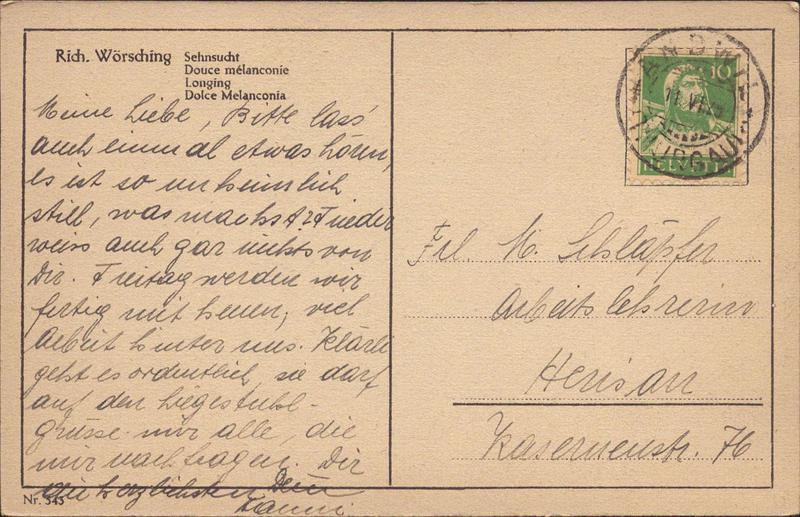 Rich. Wörsching
Sehnsucht
Douce mélanconie
Longing
Dolce Melanconia
Meine Liebe, Bitte lass'
auch einmal etwas hören,
es ist so unheimlich
still, was machst Frieder
weiss auch gar nichts von
Dir. Freitag werden wir
fertig mit heuen, viel
Arbeit hinter uns. Klärli
geht es ordentlich, sie darf
auf den Liegestuhl-
grüsse mir alle, die
mir nachfragen. Dir
die herzlichsten Dein
Fanni
Nr. 343
ANDWIL
11.VI.
(THURGAU)
10
HELVETIA
Frl. M. Schläpfer
Arbeitslehrerin
Herisau
Kasernenstr. 76